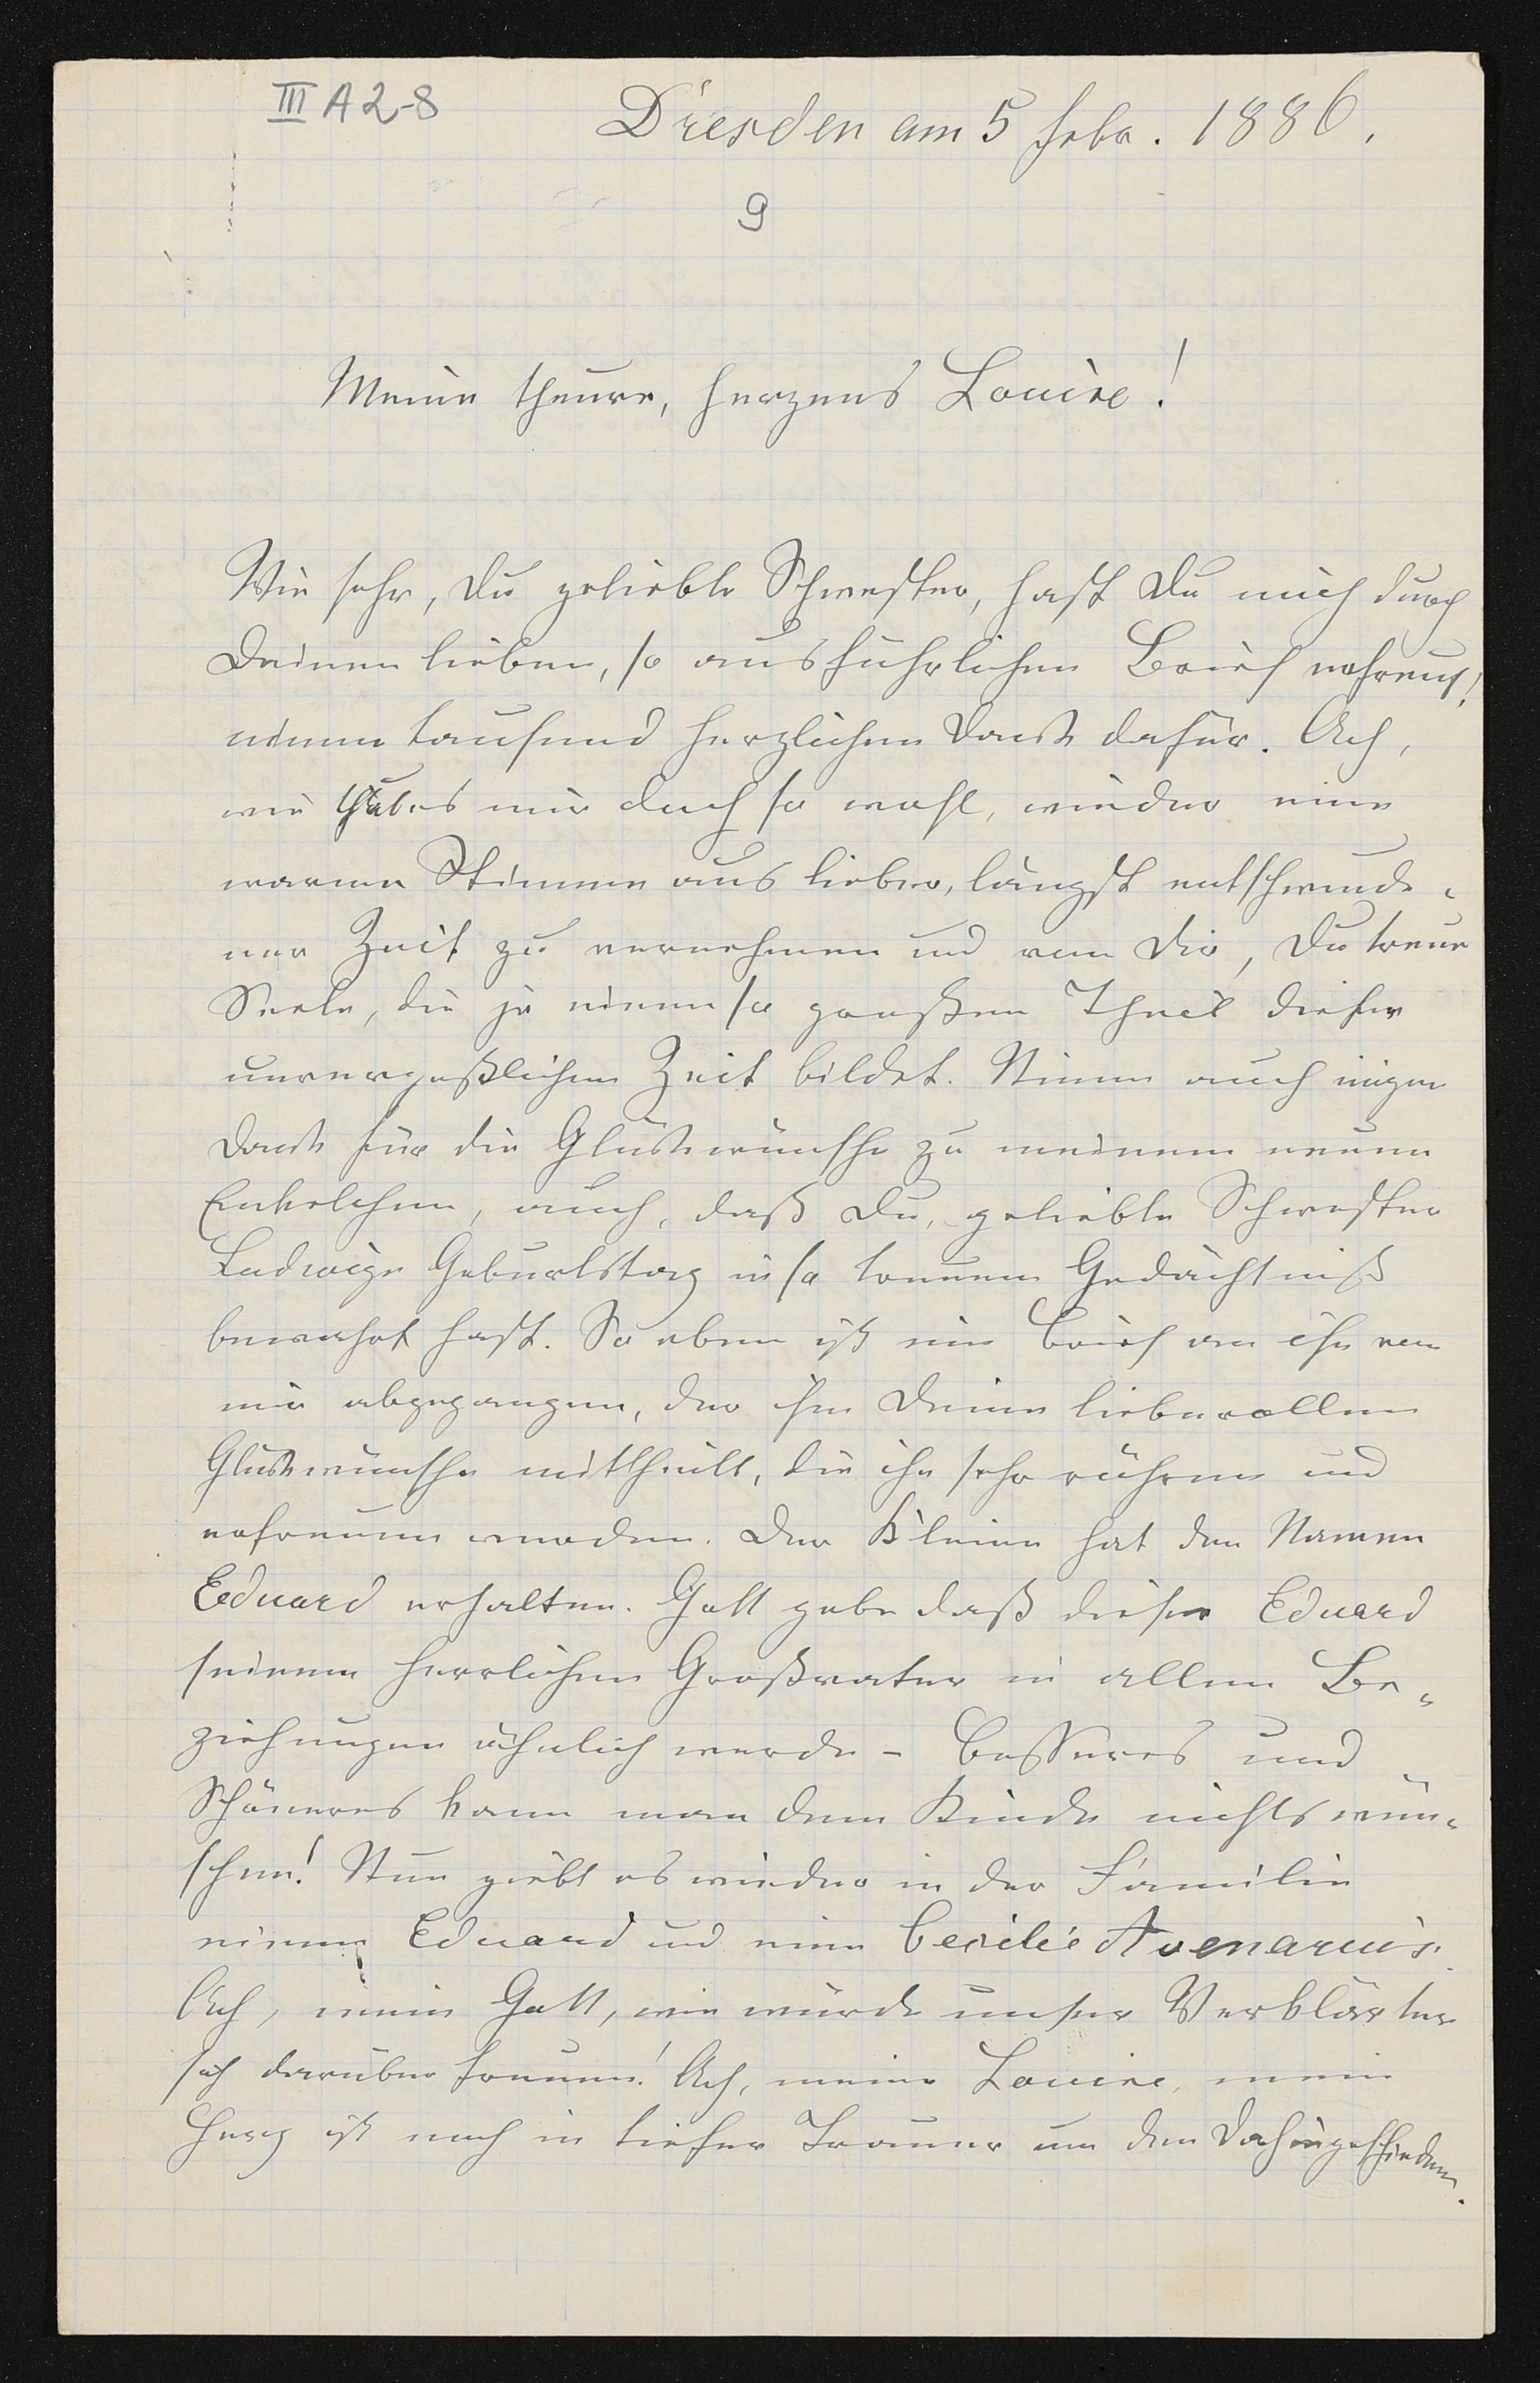 III A 2-8
Dresden am 5 Febr. 1886.
9
Meine theure, herzens Louise!
Wie sehr, Du geliebte Schwester, hast Du mich durch
Deinen lieben, so ausführlichen Brief erfreut!
einen tausend herzlichen Dank dafür. Ach,
wie that es mir doch so wohl, wieder eine
warme Stimme aus lieber, längst entschwunde-
ner Zeit zu vernehmen und von Dir, Du treue
Seele, die ja einen so großen Theil dieser
unvergeßlichen Zeit bildet. Nimm auch innigen
Dank für die Glückwünsche zu meinem neuen
Enkelchen, auch, daß Du, geliebte Schwester
Ludwigs Geburtstag in so treuem Gedächtniß
bewahrt hast. So eben ist ein Brief an ihn von
mir abgegangen, der ihm Deine liebevollen
Glückwünsche mittheilt, die ihn sehr rühren und
erfreuen werden. Der Kleine hat den Namen
Eduard erhalten. Gott gebe daß dieser Eduard
seinem herrlichen Großvater in allen Be-
ziehungen ähnlich werde - Besseres und
Schöneres kann man dem Kinde nichts wün-
schen! Nun giebt es wieder in der Familie
einen Eduard und eine Cecilie Avenarius.
Ach, mein Gott, wie würde unser Verklärter
sich darüber freuen! Ach, meine Louise, mein
Herz ist noch in tiefer Trauer um den Dahingeschiedenen.